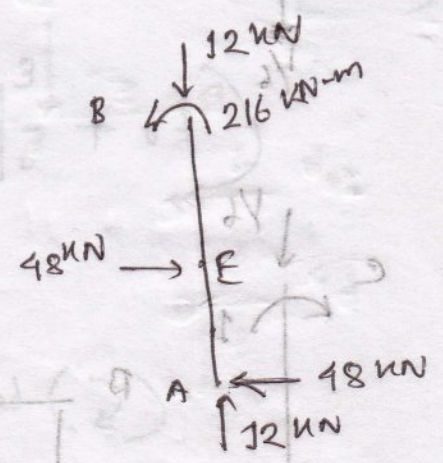 12 KN
B 216 KN-m
48 KN E
A 48 KN
12 KN